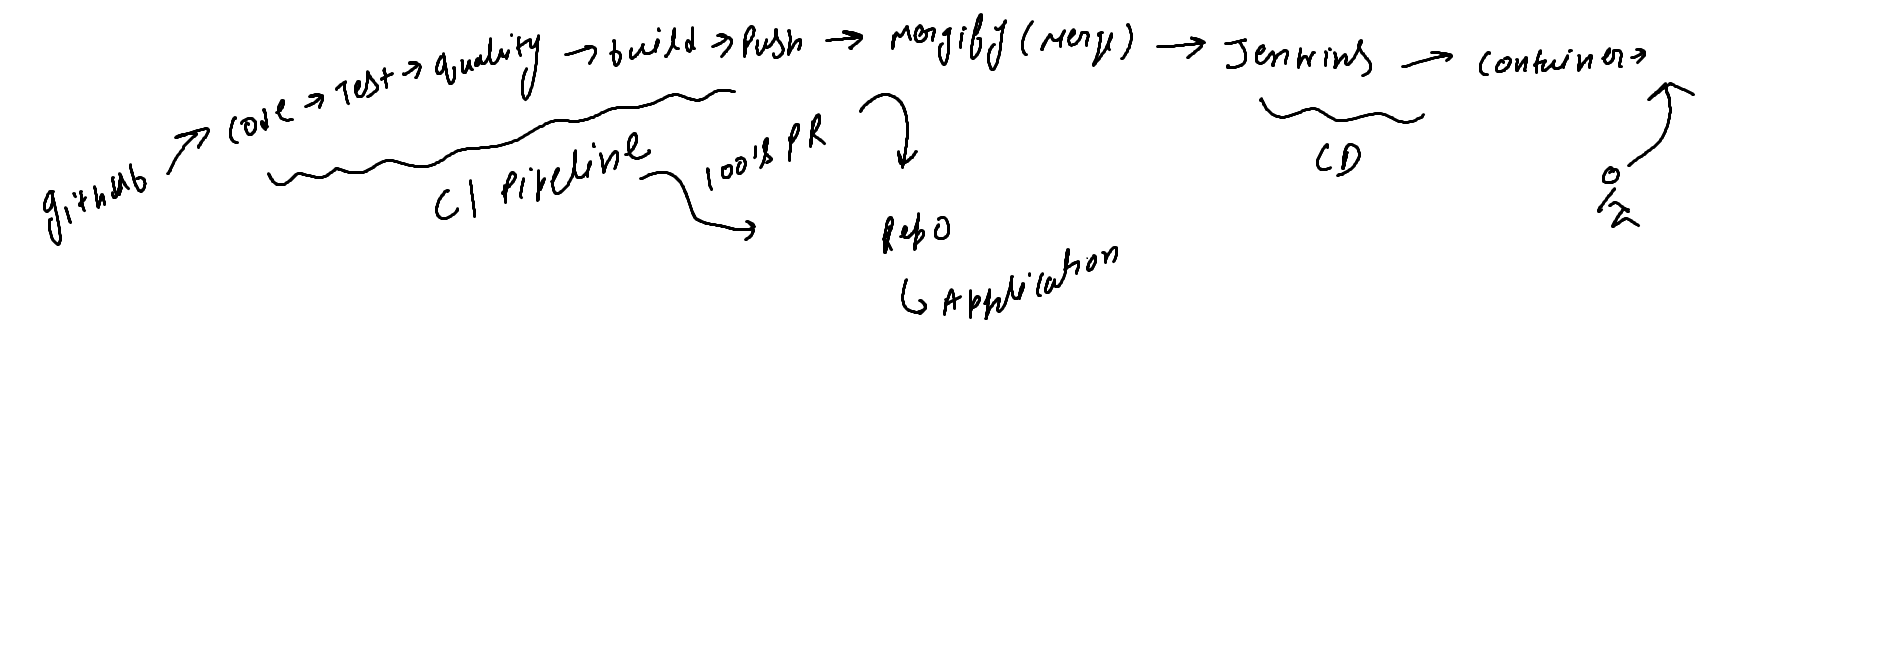 github → code → Test → quality → build → Push → Mergify (Merge) → Jenkins → containers
CI Pipeline
100's PR
CD
Repo
Application